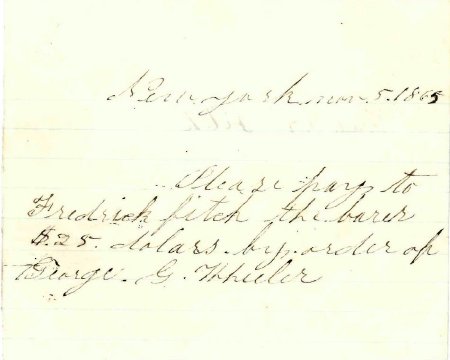 New york nov. 5. 1865
Please pay to
Fredrick fitch the barer
$.25. dolars. by. order of
George. G. Wheeler